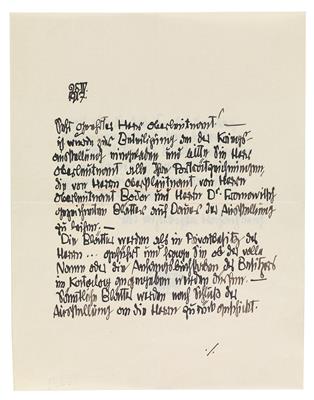 Sehr geehrter Herr Oberleutnant! —
ich wurde zur Beteiligung an der Kriegs-
ausstellung eingeladen und bitte Sie Herr
Oberleutnant alle Ihre Porträtzeichnungen,
die von Herrn Oberstleutnant, von Herrn
Oberleutnant und Herrn Dr.
gezeichneten Blätter auf Dauer der Ausstellung
zu leihen. —
Die Blätter werden als im Privatbesitz des
Herrn ... angeführt und frage Sie ob der volle
Name oder die Anfangsbuchstaben des Besitzers
im Katalog angegeben werden dürfen. —
Sämtliche Blätter werden nach Schluß der
Ausstellung an die Herrn zurück geschickt.
./.